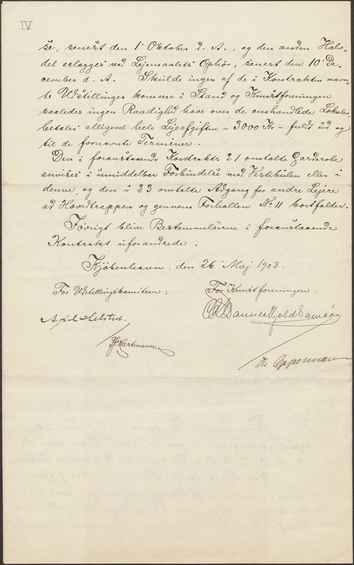 IV
se, senest den 1 Oktober d. A., og den anden Halv-
del erlægges ved Lejemaalets Ophør, senest den 10 De-
cember d. A. Skulde ingen af de i Kontrakten nævn-
te Udstillinger komme i Stand og Kunstforeningen
saaledes ingen Raadighed have over de omhandlede Lokaler
betales alligevel hele Lejeafgiften - 3000 Kr - fuldt ud og
til de fornævnte Terminer.
Den i foranstaaende Kontrakts § 1 omtalte Garderobe
anvises i umiddelbar Forbindelse med Vestibulen eller i
denne, og den i § 3 omtalte Adgang for andre Lejere
ad Hovedtrappen og gennem Forhallen No 11 bortfalder.
Iøvrigt blive Bestemmelserne i foranstaaende
Kontrakt uforandrede.
Kjøbenhavn, den 26 Maj 1903.
For Udstillingskomiteen. For Kunstforeningen.
Axel Helsted.